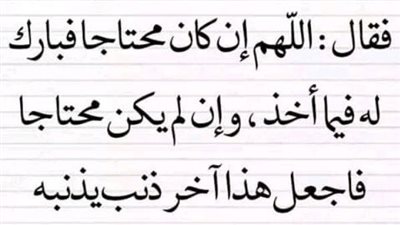 فقال : اللّهم إن كان محتاجا فبارك
له فيما أخذ ، وإن لم يكن محتاجا
فاجعل هذا آخر ذنب يذنبه